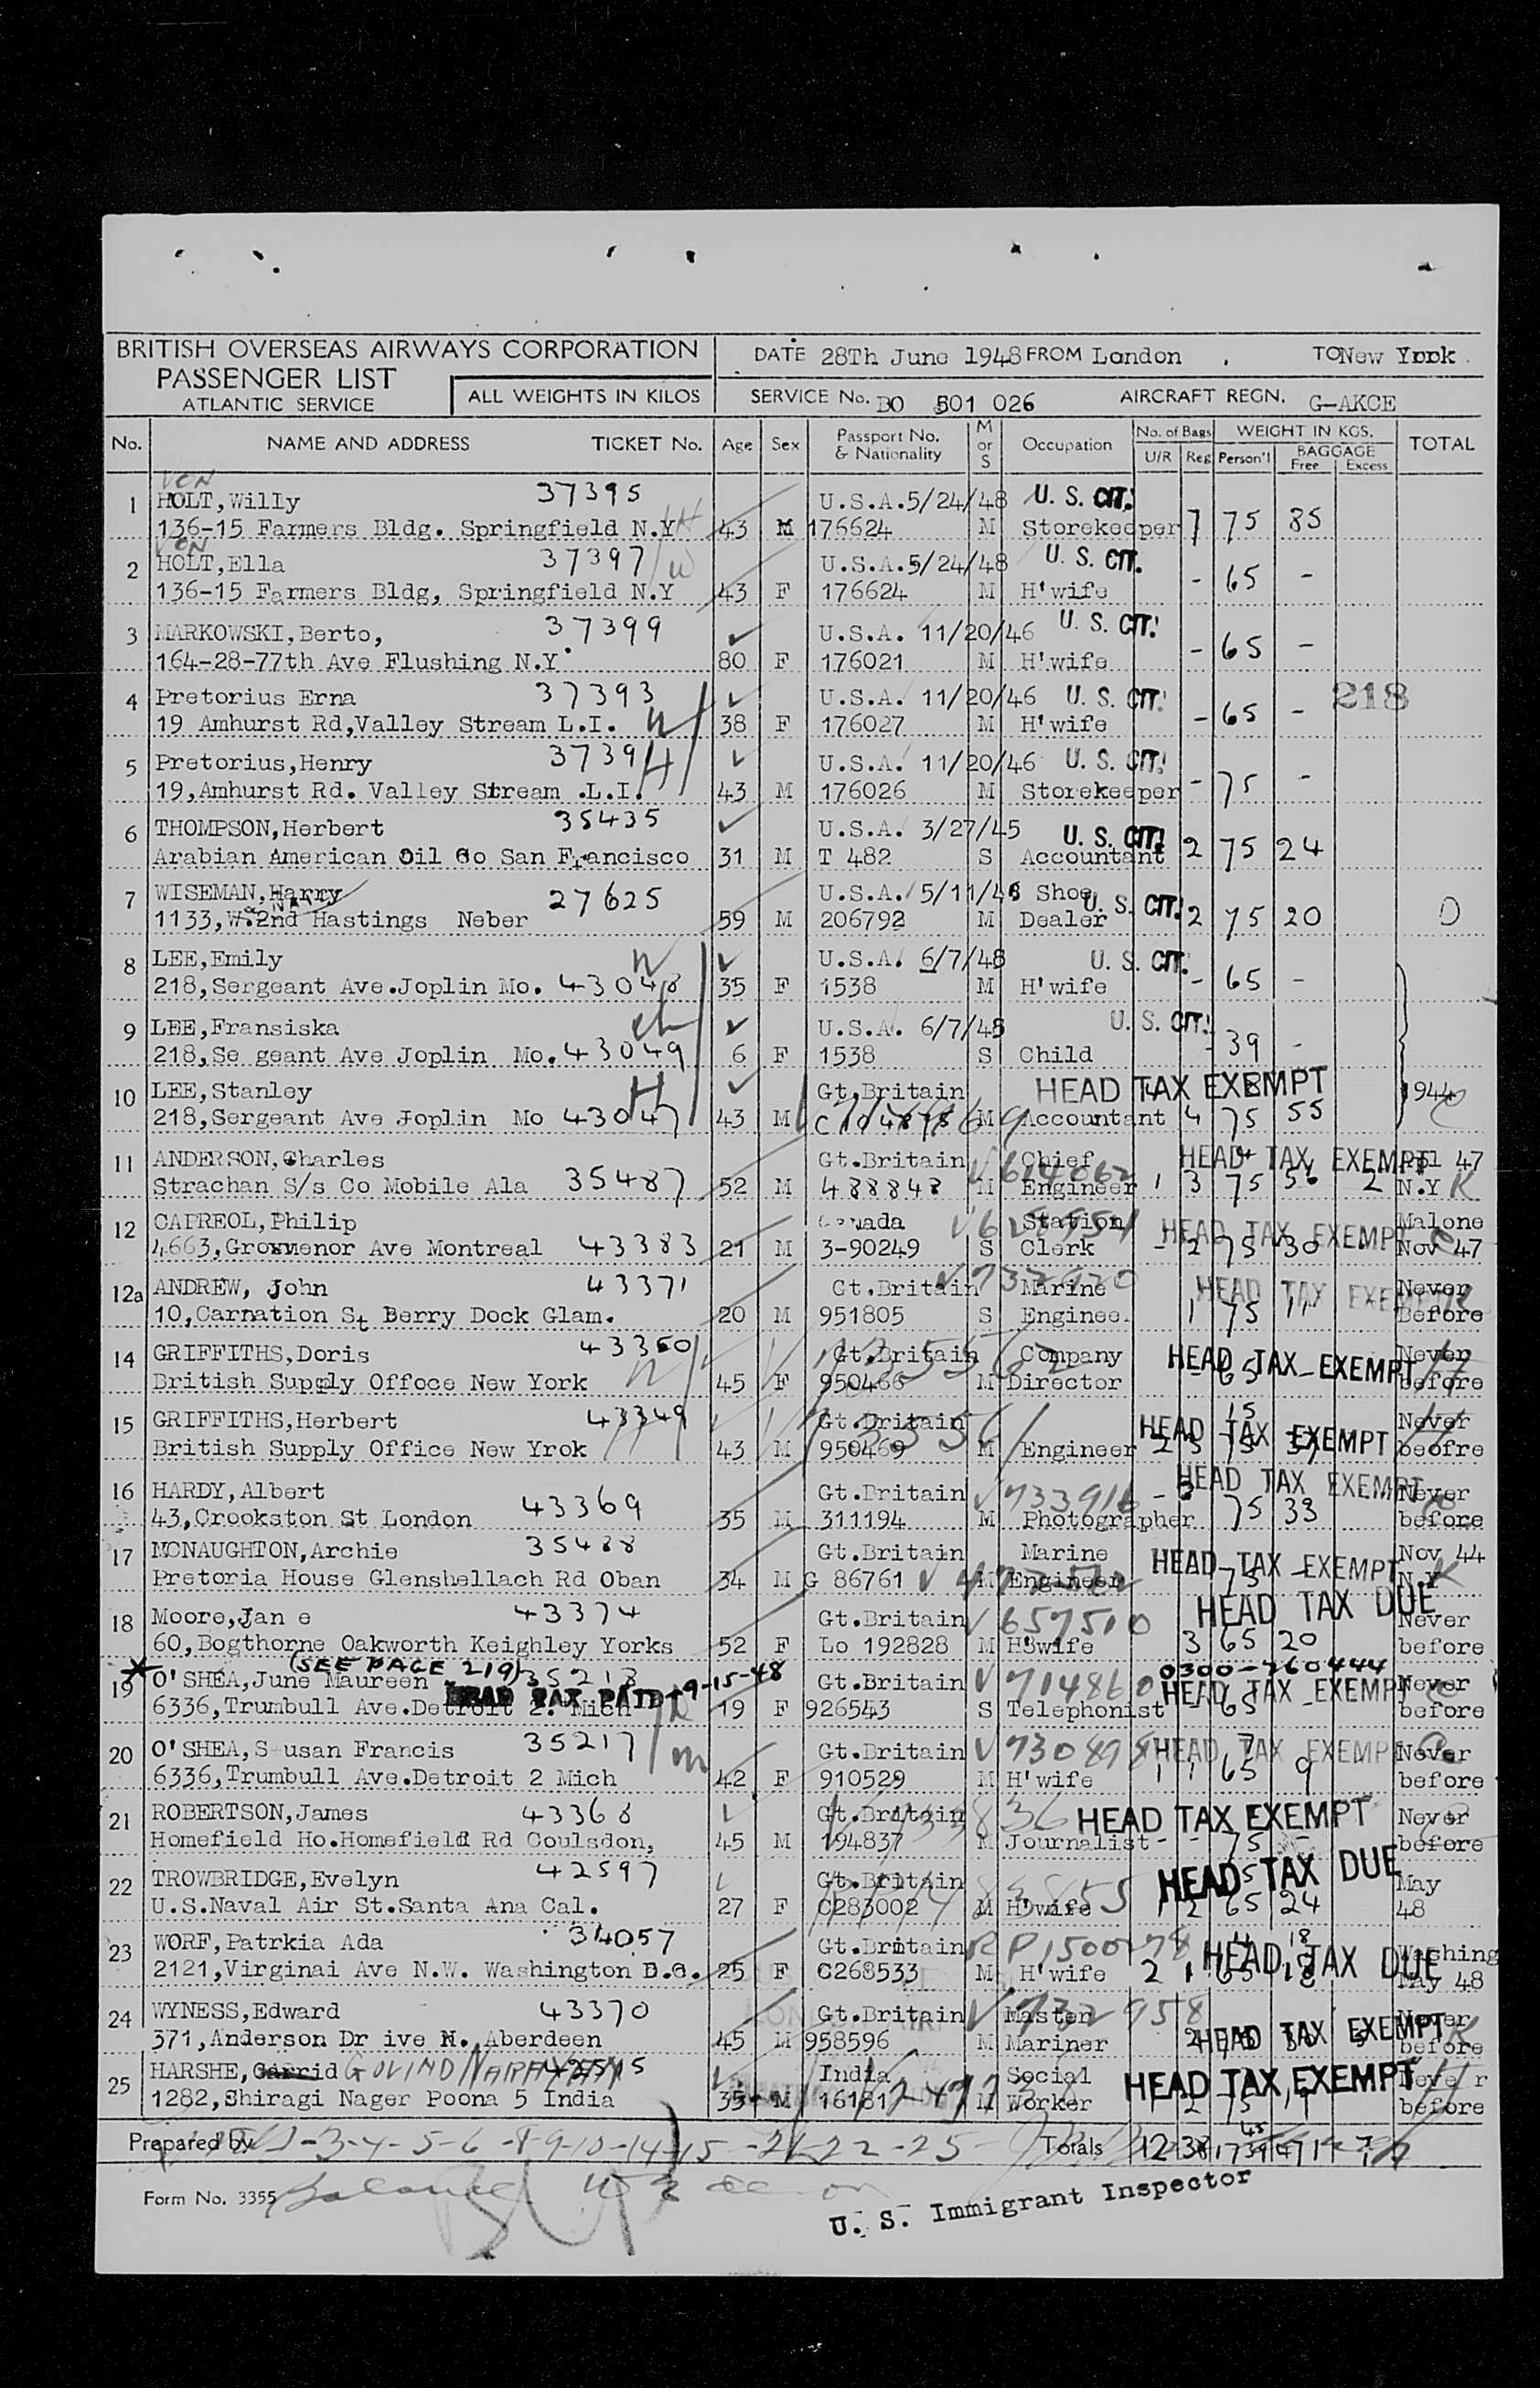 BRITISH OVERSEAS AIRWAYS CORPORATION
PASSENGER LIST
ATLANTIC SERVICE
ALL WEIGHTS IN KILOS
DATE 28Th June 1948 FROM London TO New Yrork
SERVICE No. BO 501 026 AIRCRAFT REGN. G-AKCE
No. NAME AND ADDRESS TICKET No. Age Sex Passport No. & Nationality M or S Occupation No. of Bags U/R Reg WEIGHT IN KGS. Person'l BAGGAGE Free Excess TOTAL
VON
1 HOLT,Willy 37395 U.S.A.5/24/48 U. S. CIT.
136-15 Farmers Bldg. Springfield N.Y H 43 M 176624 M Storekeeper 7 75 85
VON
2 HOLT,Ella 37397 W U.S.A.5/24/48 U. S. CIT.
136-15 Farmers Bldg, Springfield N.Y 43 F 176624 M H'wife - 65 -
3 MARKOWSKI,Berto, 37399 U.S.A. 11/20/46 U. S. CIT.
164-28-77th Ave Flushing N.Y. 80 F 176021 M H'wife - 65 -
4 Pretorius Erna 37393 U.S.A. 11/20/46 U. S. CIT. 218
19 Amhurst Rd,Valley Stream L.I. W 38 F 176027 M H'wife - 65 -
5 Pretorius,Henry 37391 H U.S.A. 11/20/46 U. S. CIT.
19,Amhurst Rd. Valley Stream .L.I. 43 M 176026 M Storekeeper - 75 -
6 THOMPSON,Herbert 35435 U.S.A. 3/27/45 U. S. CIT.
Arabian American Oil Co San Francisco 31 M T 482 S Accountant 2 75 24
7 WISEMAN,Harry 27625 U.S.A. 5/11/48 Shoe U. S. CIT.
1133,W.2nd Hastings Neber 59 M 206792 M Dealer 2 75 20
8 LEE,Emily W U.S.A. 6/7/48 U. S. CIT.
218,Sergeant Ave.Joplin Mo. 43048 35 F 1538 M H'wife - 65 -
9 LEE,Fransiska ch U.S.A. 6/7/48 U. S. CIT.
218,Se geant Ave Joplin Mo. 43049 6 F 1538 S Child - 39 -
10 LEE,Stanley H Gt.Britain HEAD TAX EXEMPT 1944
218,Sergeant Ave Joplin Mo 43047 43 M M Accountant 4 75 55
11 ANDERSON,Charles Gt.Britain Chief HEAD TAX EXEMPT 47
Strachan S/s Co Mobile Ala 35487 52 M 488848 M Engineer 1 3 75 56 2 N.Y K
12 CAPREOL,Philip Canada Station HEAD TAX EXEMPT Malone
4663,Grosvmenor Ave Montreal 43383 21 M 3-90249 S Clerk - 2 75 30 Nov 47
12a ANDREW, John 43371 Gt.Britain Marine HEAD TAX EXEMPT Never
10,Carnation St Berry Dock Glam. 20 M 951805 S Enginee. 1 75 11 Before
14 GRIFFITHS,Doris 43350 Gt.Britain Company HEAD TAX EXEMPT Never
British Supply Offoce New York W 45 F 950466 M Director 65 before
15 GRIFFITHS,Herbert 43349 Gt.Britain HEAD TAX EXEMPT Never
British Supply Office New Yrok 43 M 950469 M Engineer 75 beofre
16 HARDY,Albert Gt.Britain 733916 HEAD TAX EXEMPT Never
43,Crookston St London 43369 35 M 311194 M Photographer 75 33 before
17 MCNAUGHTON,Archie 35488 Gt.Britain Marine HEAD TAX EXEMPT Nov 44
Pretoria House Glenshellach Rd Oban 34 M G 86761 M Engineer 75 N.Y K
18 Moore,Jan e 43374 Gt.Britain 657510 HEAD TAX DUE Never
60,Bogthorne Oakworth Keighley Yorks 52 F Lo 192828 M H'wife 3 65 20 before
(SEE PAGE 219) 0300-760444
19 O'SHEA,June Maureen 35218 9-15-48 Gt.Britain 714860 HEAD TAX EXEMPT Never
HEAD TAX PAID
6336,Trumbull Ave.Detroit 2. Mich 19 F 926543 S Telephonist - 65 before
20 O'SHEA,S usan Francis 35217 m Gt.Britain 730898 HEAD TAX EXEMPT Never
6336,Trumbull Ave.Detroit 2 Mich 42 F 910529 M H'wife 1 1 65 9 before
21 ROBERTSON,James 43368 Gt.Britain HEAD TAX EXEMPT Never
Homefield Ho.Homefield Rd Coulsdon, 45 M 194837 M Journalist - - 75 - before
22 TROWBRIDGE,Evelyn 42597 Gt.Britain HEAD TAX DUE May
U.S.Naval Air St.Santa Ana Cal. 27 F C283002 M H'wife 1 2 65 24 48
23 WORF,Patrkia Ada 34057 Gt.Britain RP HEAD TAX DUE Washing
2121,Virginai Ave N.W. Washington D.C. 25 F C268533 M H'wife 2 1 65 18 May 48
24 WYNESS,Edward 43370 Gt.Britain 732958 Master Never
371,Anderson Dr ive N. Aberdeen 45 M 958596 M Mariner HEAD TAX EXEMPT before K
25 HARSHE, GOVIND India Social HEAD TAX EXEMPT Neve r
1282,Shiragi Nager Poona 5 India 35 M 16181 M Worker 2 75 before
Prepared by -3-4-5-6-8-9-10-14-15-21-22-25 Totals 12 38
Form No. 3355
U. S. Immigrant Inspector